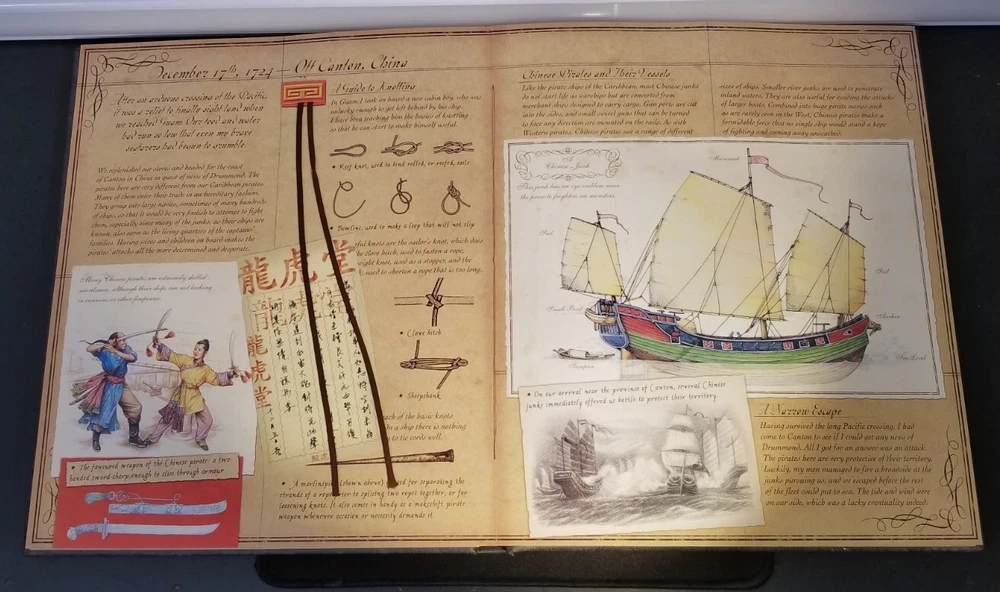 December 17th, 1724 — Off Canton, China
After an arduous crossing of the Pacific,
it was a relief to finally sight land when
we reached Guam. Our food and water
had run so low that even my brave
seafarers had begun to grumble.
We replenished our stores and headed for the coast
of Canton in China in quest of news of Drummond. The
pirates here are very different from our Caribbean pirates.
Many of them enter their trade in an hereditary fashion.
They group into large navies, sometimes of many hundreds
of ships, so that it would be very foolish to attempt to fight
them, especially since many of the junks, as their ships are
known, also serve as the living quarters of the captains'
families. Having wives and children on board makes the
pirates' attacks all the more determined and desperate.
Many Chinese pirates are extremely skilled
swordsmen, although their ships are not lacking
in cannons or other firepower.
• The favoured weapon of the Chinese pirate: a two-
handed sword sharp enough to slice through armour
A Guide to Knotting
In Guam I took on board a new cabin boy, who was
unlucky enough to get left behind by his ship.
I have been teaching him the basics of knotting
so that he can start to make himself useful.
• Reef knot, used to bind rolled, or reefed, sails
• Bowline, used to make a loop that will not slip
ful knots are the sailor's knot, which does
he clove hitch, used to fasten a rope,
eight knot, used as a stopper, and the
used to shorten a rope that is too long.
龍虎堂
龍虎堂
• Clove hitch
• Sheepshank
each of the basic knots
a ship there is nothing
to tie cords well.
• A marlinspike (shown above) is used for separating the
strands of a rope or splicing two ropes together, or for
loosening knots. It also comes in handy as a makeshift pirate
weapon whenever occasion or necessity demands it.
Chinese Pirates and Their Vessels
Like the pirate ships of the Caribbean, most Chinese junks
do not start life as warships but are converted from
merchant ships designed to carry cargo. Gun ports are cut
into the sides, and small swivel guns that can be turned
to face any direction are mounted on the rails. As with
Western pirates, Chinese pirates use a range of different
sizes of ships. Smaller river junks are used to penetrate
inland waters. They are also useful for evading the attacks
of larger boats. Combined into huge pirate navies such as
are rarely seen in the West, Chinese pirates make a
formidable force that no single ship would stand a hope
of fighting and coming away unscathed.
A
Chinese Junk
This junk has an eye emblem near
the prow to frighten sea monsters.
Mainmast
Sail
Sail
Anchor
Sea Level
Sampan
• On our arrival near the province of Canton, several Chinese
junks immediately offered us battle to protect their territory.
A Narrow Escape
Having survived the long Pacific crossing, I had
come to Canton to see if I could get any news of
Drummond. All I got for an answer was an attack.
The pirates here are very protective of their territory.
Luckily, my men managed to fire a broadside at the
junks pursuing us, and we escaped before the rest
of the fleet could put to sea. The tide and wind were
on our side, which was a lucky eventuality indeed.